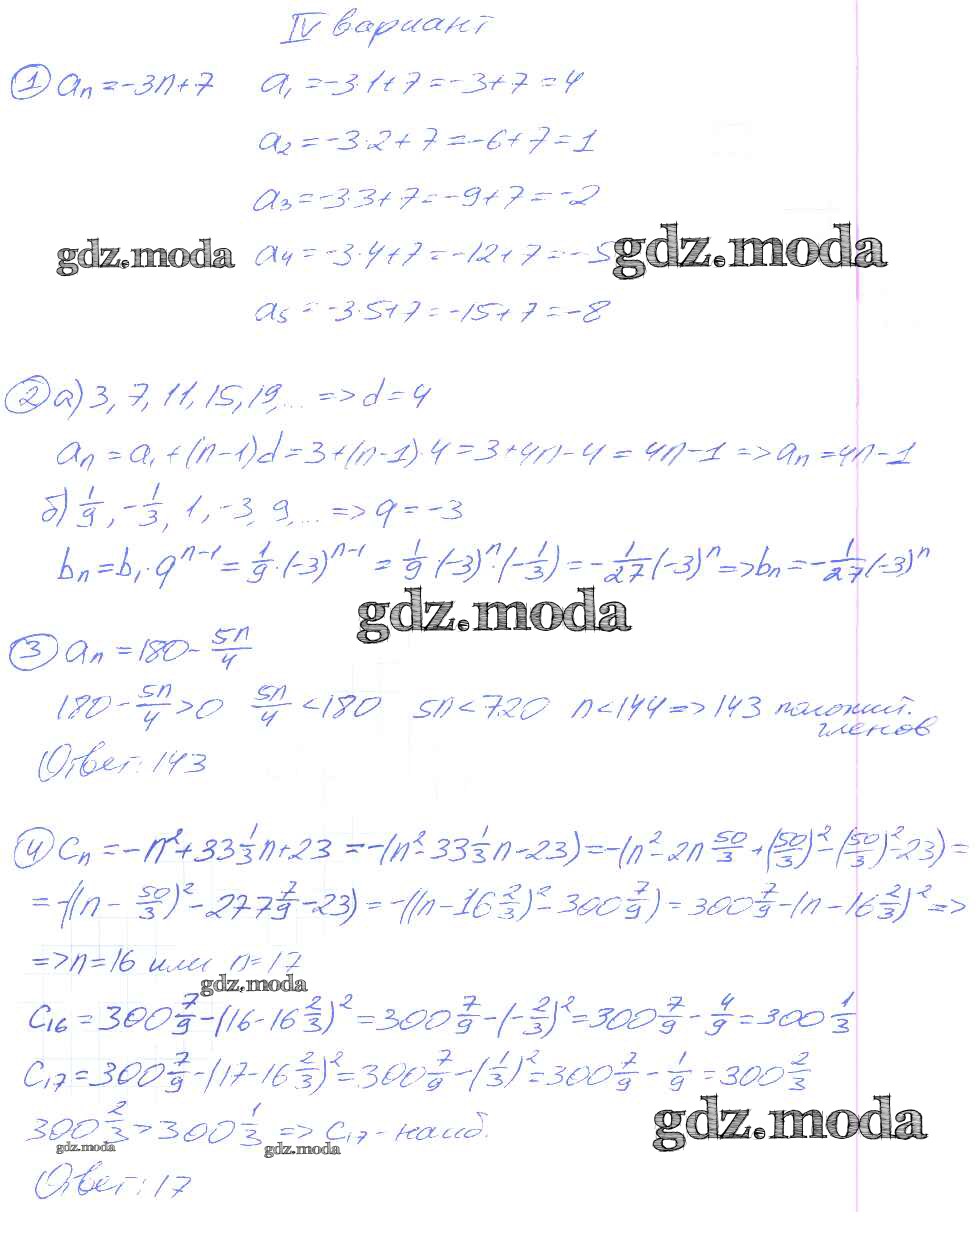 IV вариант
① aₙ = -3n+7   a₁ = -3·1+7 = -3+7 = 4
a₂ = -3·2+7 = -6+7 = 1
a₃ = -3·3+7 = -9+7 = -2
gdz.moda   a₄ = -3·4+7 = -12+7 = -5   gdz.moda
a₅ = -3·5+7 = -15+7 = -8
② а) 3, 7, 11, 15, 19,... => d = 4
aₙ = a₁+(n-1)d = 3+(n-1)·4 = 3+4n-4 = 4n-1 => aₙ = 4n-1
б) 1/9, -1/3, 1, -3, 9,... => q = -3
bₙ = b₁·qⁿ⁻¹ = 1/9·(-3)ⁿ⁻¹ = 1/9·(-3)ⁿ·(-1/3) = -1/27(-3)ⁿ => bₙ = -1/27(-3)ⁿ
gdz.moda
③ aₙ = 180 - 5n/4
180 - 5n/4 > 0   5n/4 < 180   5n < 720   n < 144 => 143 положит.
членов
Ответ: 143
④ cₙ = -n²+33 1/3 n+23 = -(n²-33 1/3 n-23) = -(n²-2n 50/3+(50/3)²-(50/3)²-23) =
= -((n-50/3)²-277 7/9-23) = -((n-16 2/3)²-300 7/9) = 300 7/9-(n-16 2/3)² =>
=> n = 16 или n = 17
gdz.moda
c₁₆ = 300 7/9-(16-16 2/3)² = 300 7/9-(-2/3)² = 300 7/9-4/9 = 300 1/3
c₁₇ = 300 7/9-(17-16 2/3)² = 300 7/9-(1/3)² = 300 7/9-1/9 = 300 2/3
300 2/3 > 300 1/3 => c₁₇ - наиб.   gdz.moda
gdz.moda   gdz.moda
Ответ: 17